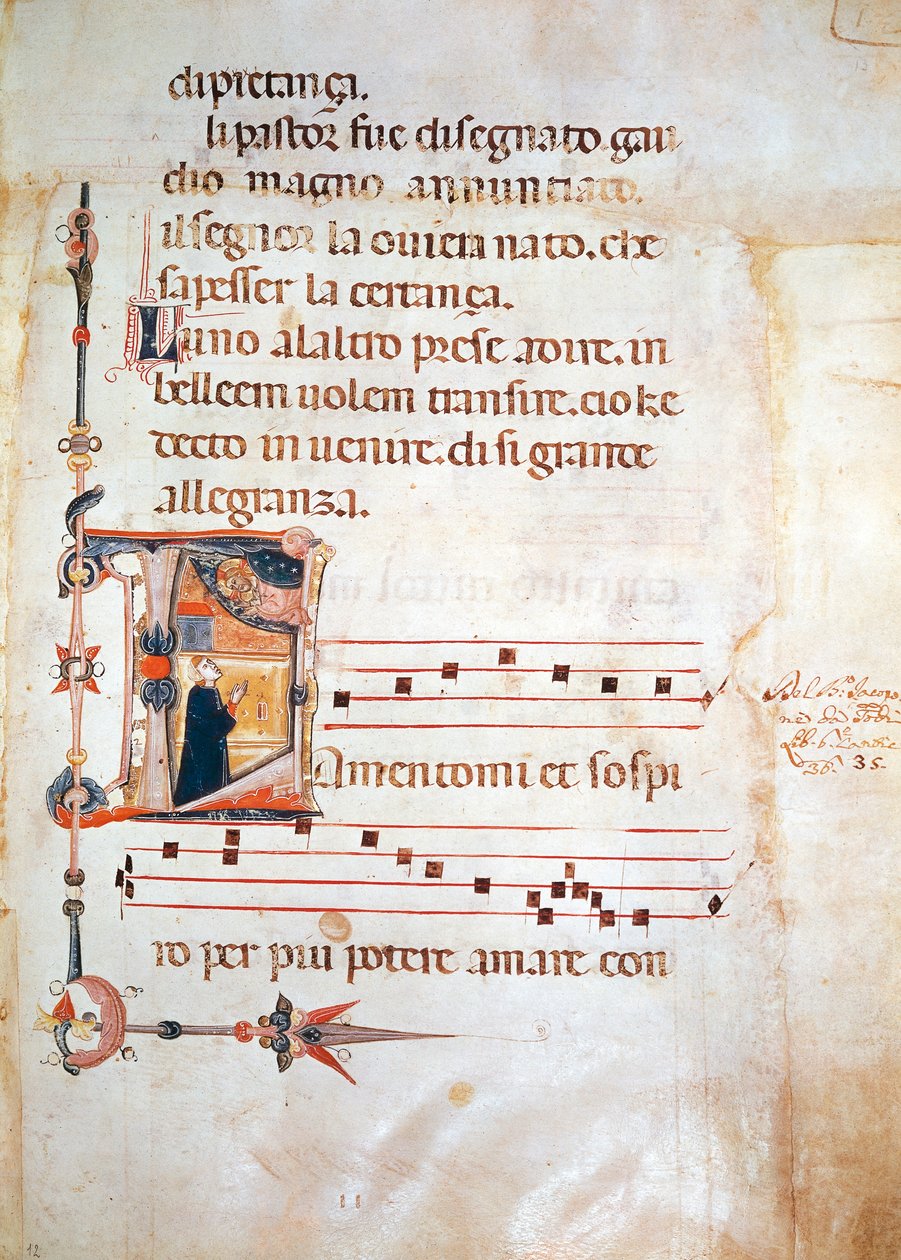 di pietança.
li pastor fue disegnato. gau
dio magno annuntiato.
il segnor la oviera nato. che
sapesser la certança.
Luno alaltro prese adire. in
belleem uolem transire. cio ke
decto in uenire. di si grande
allegranza.
Lamentomi et sospi
ro per piu potere amare con
Del B.
Jacopo
ne da Todi
Lib. 6.
36. 35.
11
12